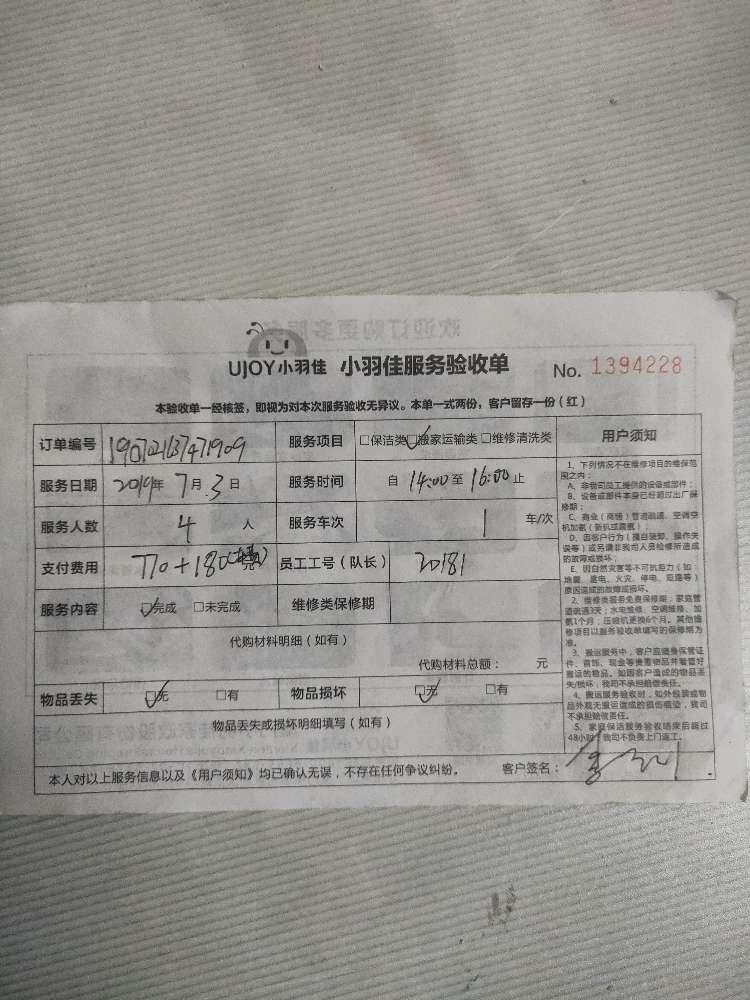 UJOY小羽佳 小羽佳服务验收单 No. 1394228
本验收单一经核签，即视为对本次服务验收无异议。本单一式两份，客户留存一份（红）
订单编号 服务项目 □保洁类 ☑搬家运输类 □维修清洗类
服务日期 2019年 7月 3日 服务时间 自 14:00 至 16:00 止
服务人数 4 人 服务车次 1 车/次
支付费用 770+180 员工工号（队长） 20181
服务内容 ☑完成 □未完成 维修类保修期
代购材料明细（如有）
代购材料总额： 元
物品丢失 ☑无 □有 物品损坏 ☑无 □有
物品丢失或损坏明细填写（如有）
本人对以上服务信息以及《用户须知》均已确认无误，不存在任何争议纠纷。 客户签名：
用户须知
1、下列情况不在维修项目的维保范
围之内：
A、非我司员工提供的设备或部件；
B、设备或部件本身已经超过出厂保
修期；
C、商业（商铺）管道疏通、空调空
机加氨（新机或露氨）；
D、因客户行为（擅自装卸、操作失
误等）或另请非我司人员检修所造成
的故障或损坏；
E、因自然灾害等不可抗拒力（如
地震、雷电、火灾、停电、短路等）
原因造成的故障或损坏。
2、维修类服务免费保修期：家庭管
道疏通3天；水电维修、空调维修、加
氨1个月；压缩机更换6个月。其他维
修项目以服务验收单填写的保修期为
准。
3、搬运服务中，客户应随身保管证
件、首饰、现金等贵重物品并看管好
搬运的物品。如因客户造成的物品丢
失/损坏，我司不承担赔偿责任。
4、搬运服务验收时，如外包装或物
品外观无搬运造成的损伤痕迹，我司
不承担赔偿责任。
5、家庭保洁服务验收结束后超过
48小时，我司不负责上门返工。